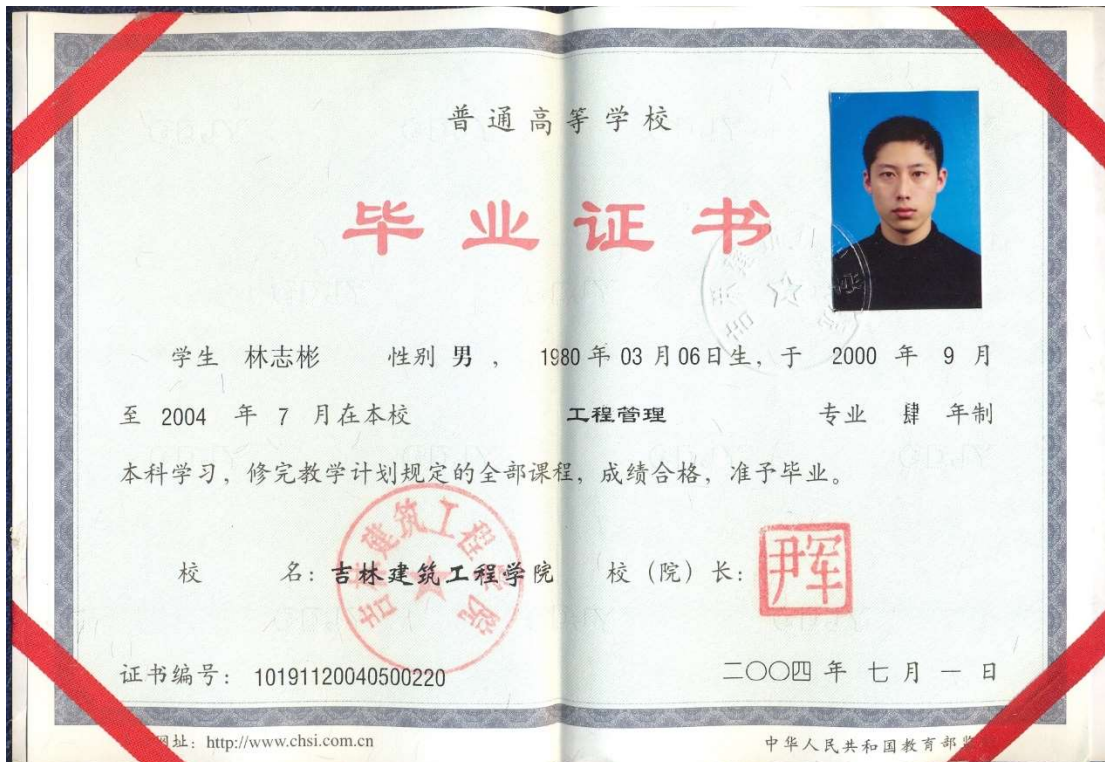 普通高等学校
毕业证书
学生 林志彬 性别 男 ， 1980 年 03 月 06日生，于 2000 年 9 月
至 2004 年 7 月在本校 工程管理 专业 肆 年制
本科学习，修完教学计划规定的全部课程，成绩合格，准予毕业。
校 名：吉林建筑工程学院 校（院）长：
吉林建筑工程学院
证书编号：10191120040500220 二〇〇四 年 七 月 一 日
址：http://www.chsi.com.cn 中华人民共和国教育部